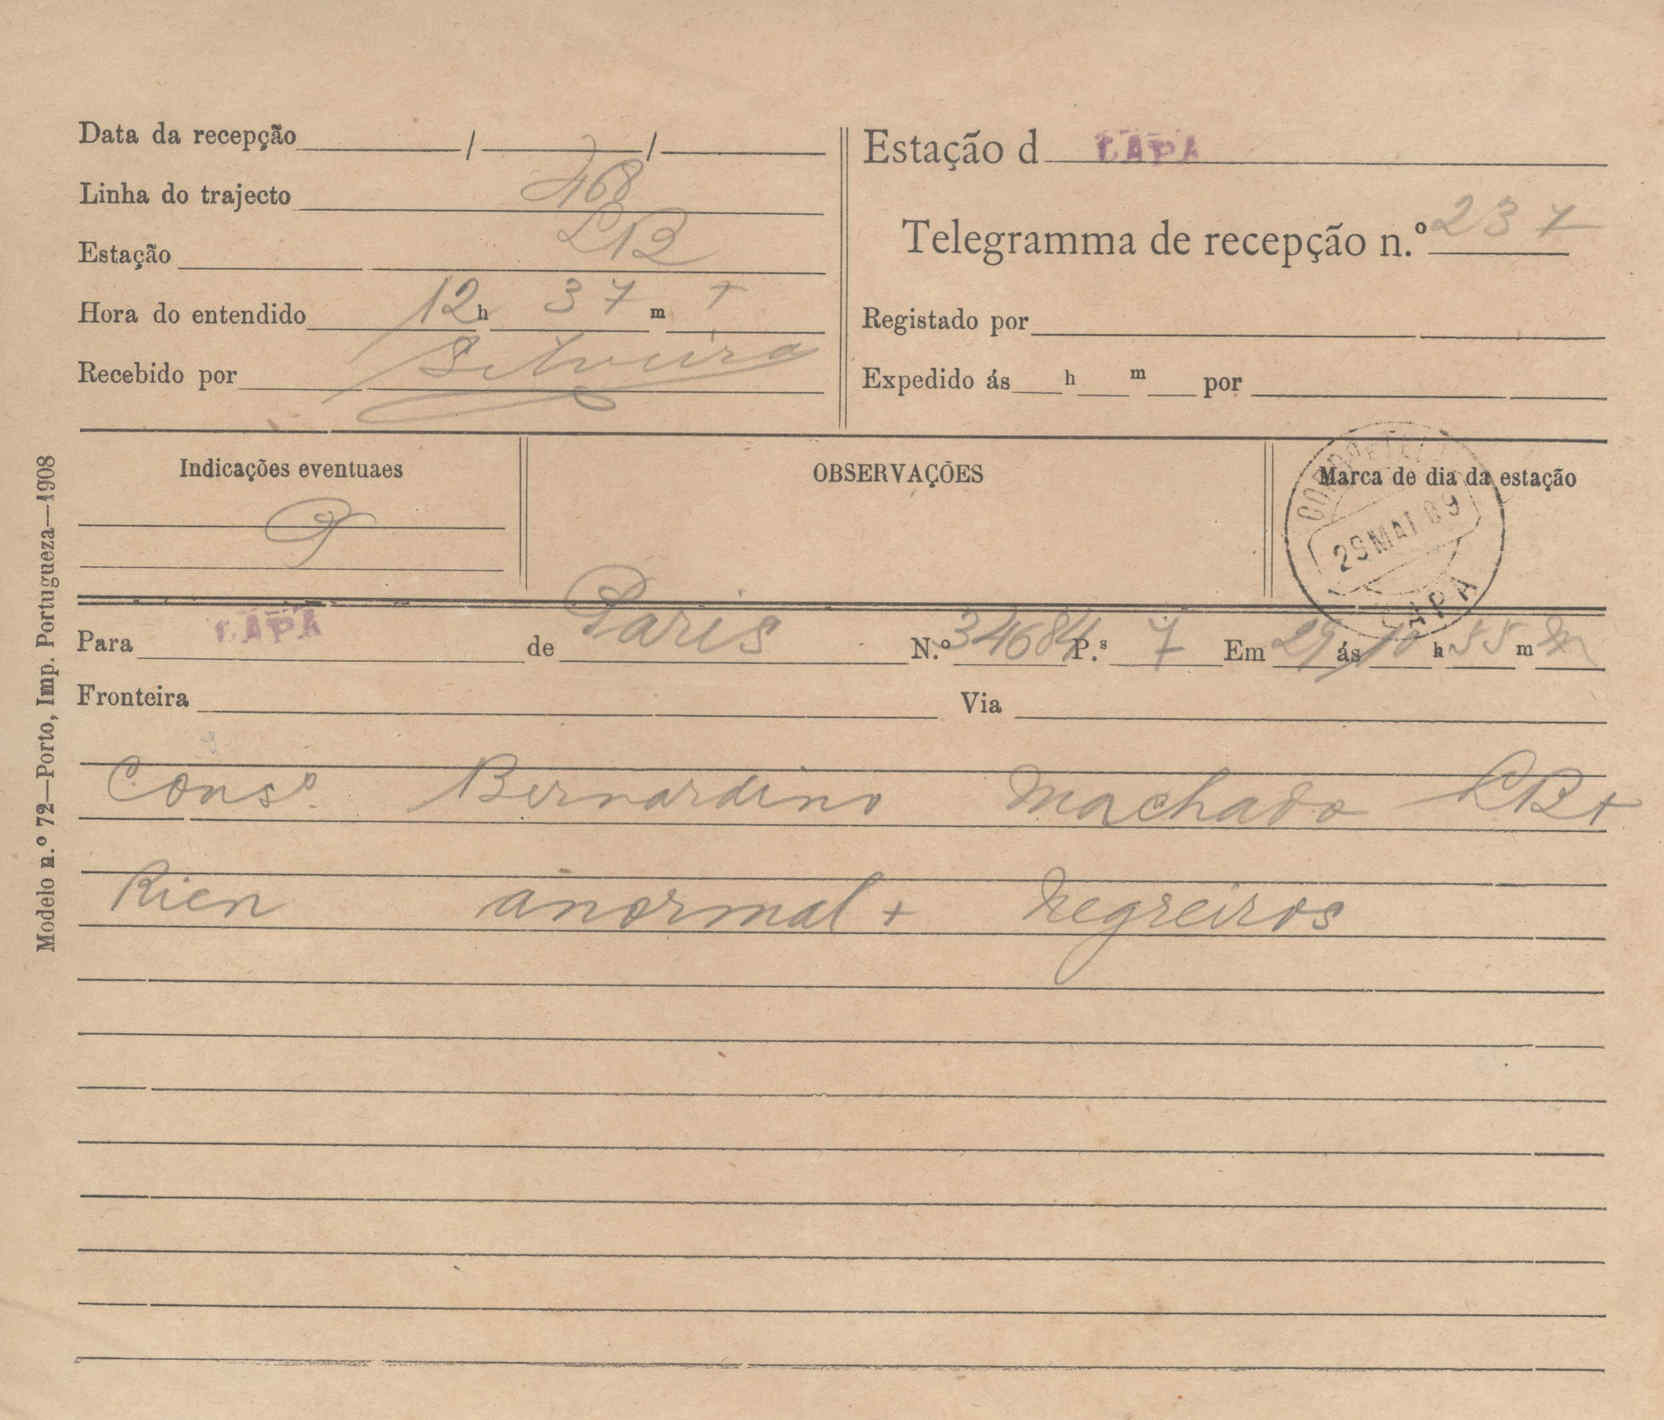 Data da recepção / /
Linha do trajecto 468
Estação LB
Hora do entendido 12 h 37 m t
Recebido por Silveira
Estação d LAPA
Telegramma de recepção n.º 237
Registado por
Expedido ás h m por
Indicações eventuaes
OBSERVAÇÕES
Marca de dia da estação
29 MAI 09
LAPA
Para LAPA de Paris N.º 34684 P.s 7 Em 29 ás 10 h 55 m M
Fronteira Via
Consº. Bernardino Machado LB +
Rien anormal + Negreiros
Modelo n.º 72—Porto, Imp. Portugueza—1908